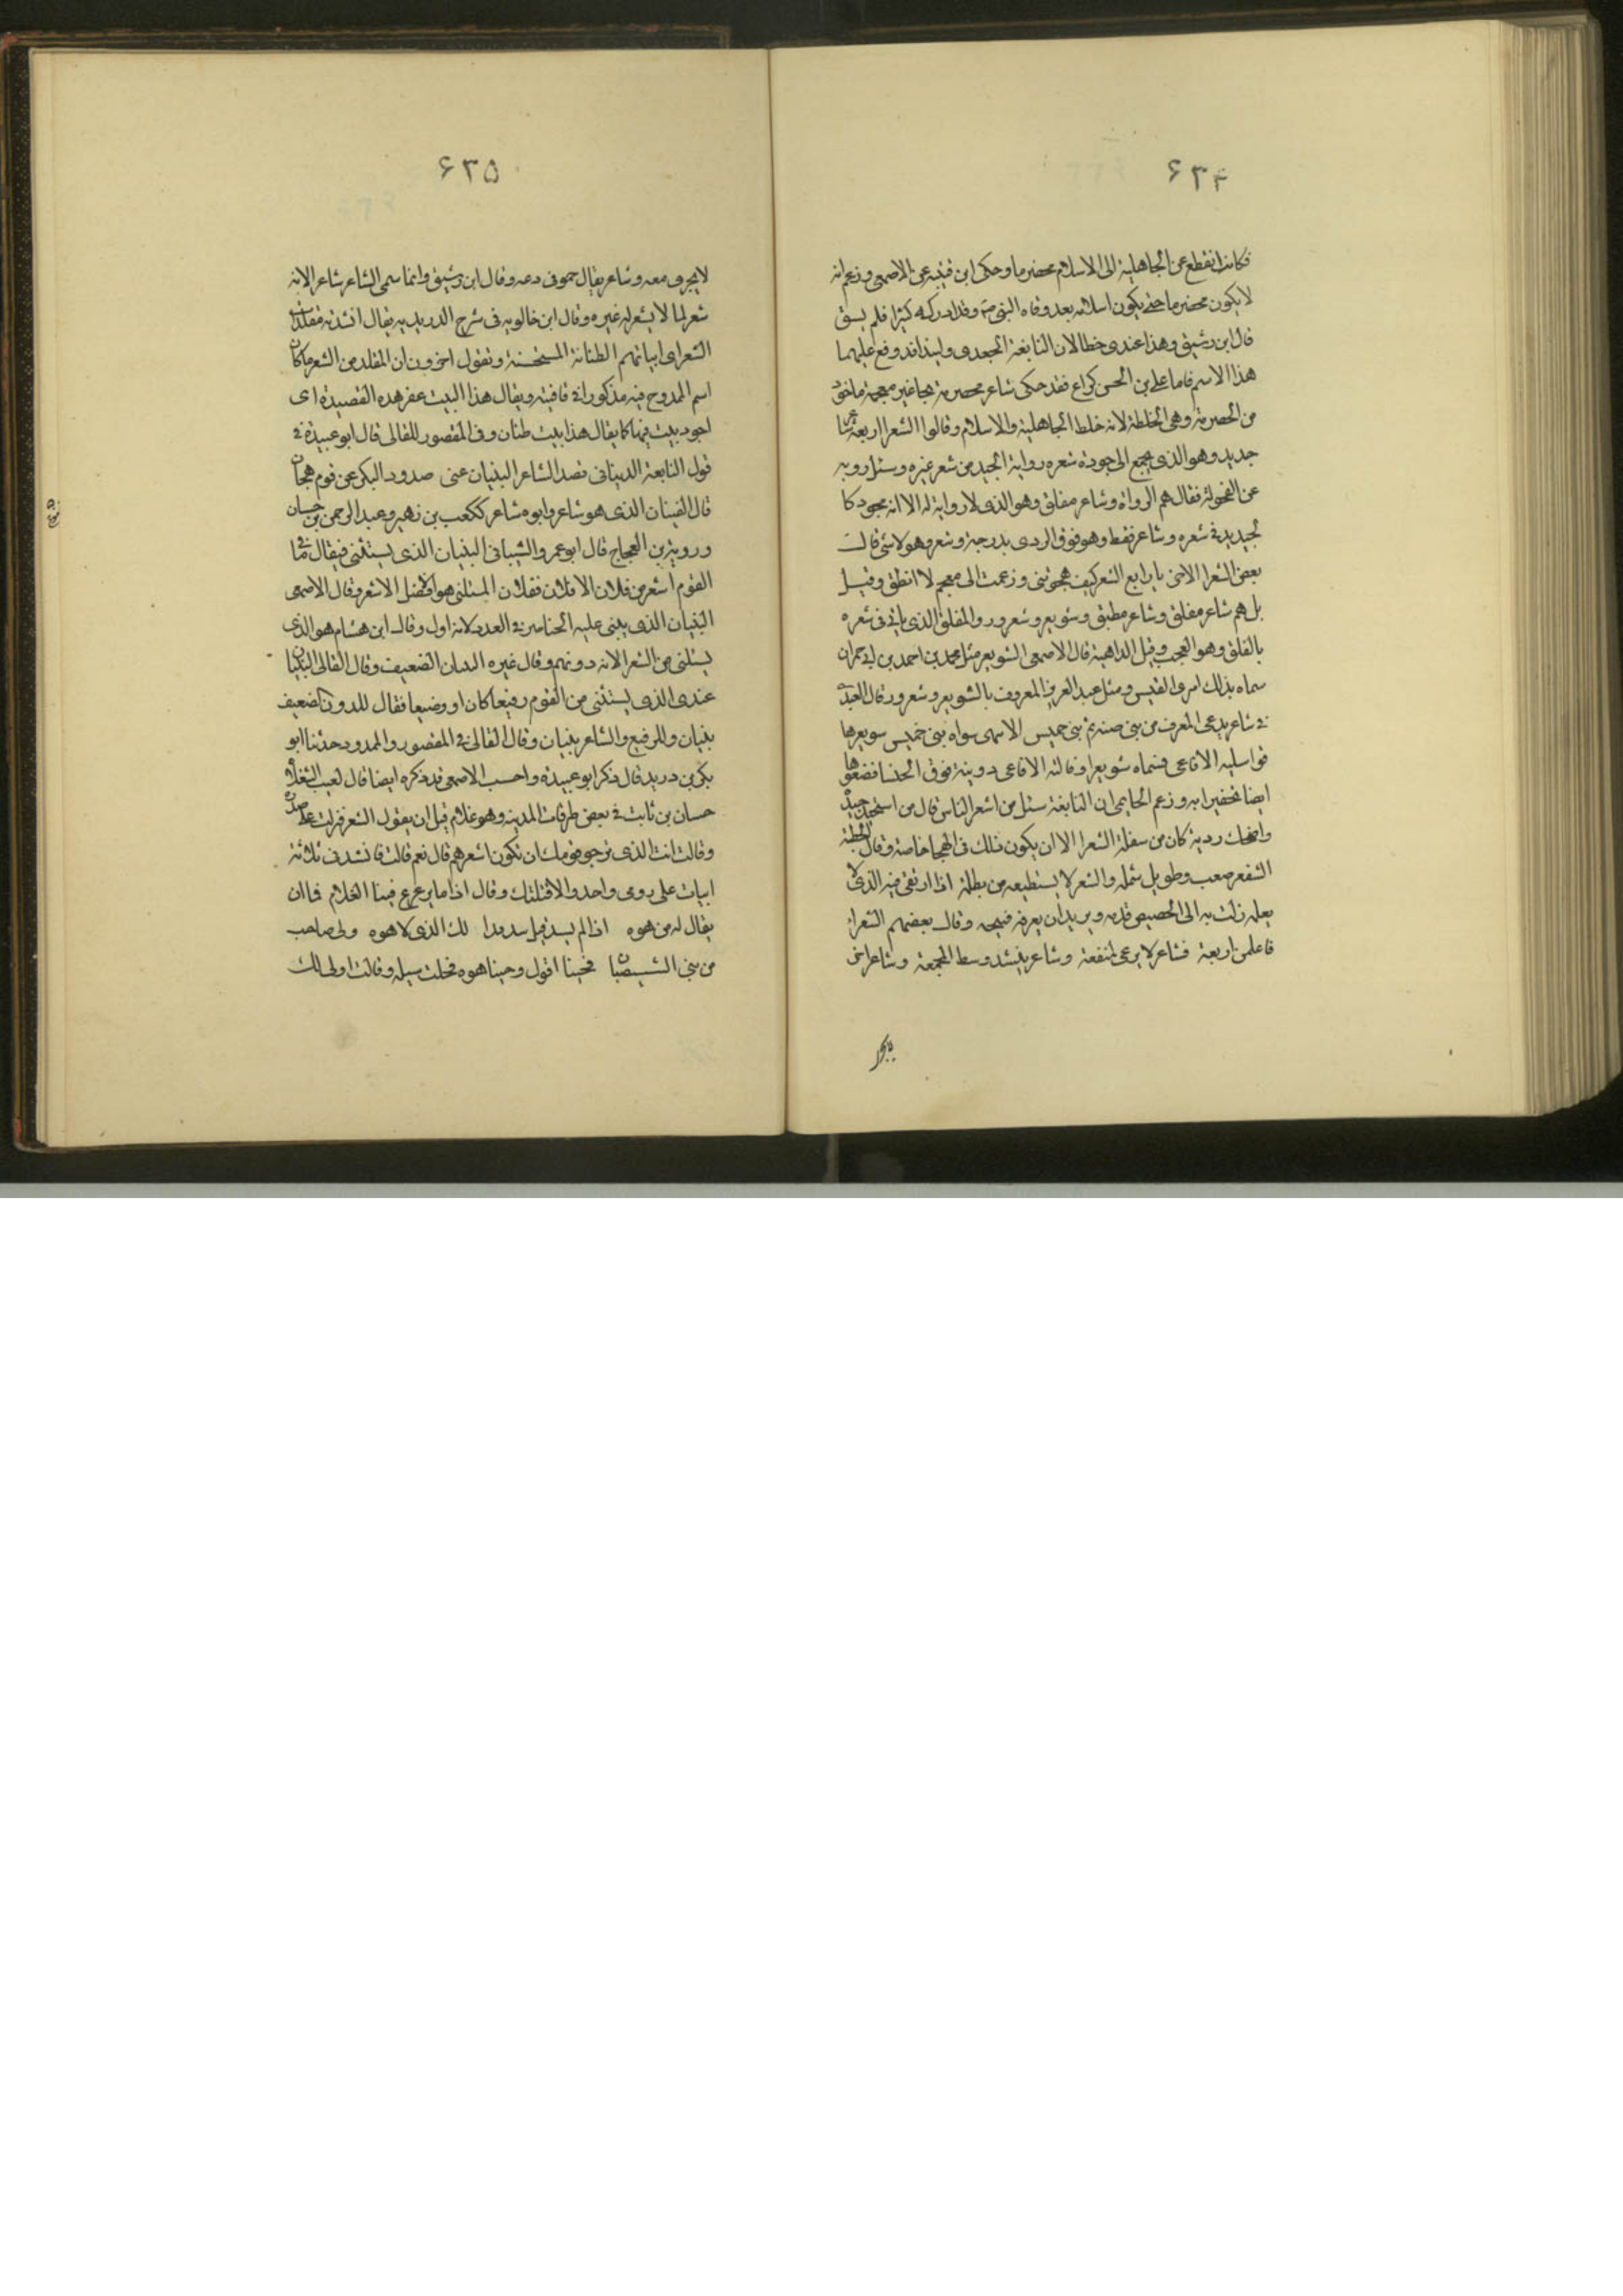 ۶۳۴
فكانه انقطع عن الجاهلية الى الاسلام مخضرما وحكى ابن قتيبه عن الاصمعى وزعم انه
لا يكون مخضرما حتى يكون اسلامه بعد وفاه النبى صم وقد ادركه كبيرا فلم يسق
قال ابن رشيق وهذا عندى خطا لان النابغة الجعدى ولبيدا قد وقع عليهما
هذا الاسم فاما على بن الحسن كراع فقد حكى شاعر محضرمة بحا غير معجمة ماخوذ
من الحضرمة وهى الخلطة لانه خلط الجاهلية والاسلام وقالوا الشعرا اربعة شاعر
جديد وهو الذى يجمع الى جودة شعره رواية الجيد من شعر غيره وسئل روبه
عن الفحولة فقال هم الرواة وشاعر مفلق وهو الذى لا رواية له الا انه مجود كا
لجيديد فى شعره وشاعر فقط وهو فوق الردى بدرجة وشعر وهو لا شئ قالت
بعض الشعرا لاخر يا رابع الشعر كيف هجوتنى وزعمت انى مفحم لا انطق وقيل
بل هم شاعر مفلق وشاعر مطبق وشويعر وشعرور والمفلق الذى ياتى فى شعره
بالفلق وهو العجب وقيل الداهية قال الاصمعى الشويعر مثل محمد بن احمد بن ابى حمران
سماه بذلك امرؤ القيس ومثل عبد العزيز المعروف بالشويعر وشعرور قال العبد
فى شاعر يدعى المعرف من بنى ضنه ثم بنى خميس الا سواه بنى خميس سويعرها
فواسليه الافاعى فسماه شويعرا وقالته الافاعى دوينة فوق الخنسا فصغرها
ايضا تحقيرا به وزعم الحاتمى ان النابغة سئل من اشعر الناس قال من استجيد جيده
واضحك رديه كان من سفلة الشعرا الا ان يكون ذلك فى الهجا خاصة وقال الحطيئة
الشعر صعب وطويل سلمه والشعر لا يستطيعه من يظلمه اذا ارتقى فيه الذى لا
يعلمه زلت به الى الحضيض قدمه ويريد ان يعربه فيعجمه وقال بعضهم الشعراء
فاعلمن اربعة فشاعر لا يرتجى لمنفعة وشاعر ينشد وسط المجمعة وشاعر اخر
۶۳۵
لا يجرى معه وشاعر يقال خمر فى دعه وقال ابن رشيق وانما سمى الشاعر شاعرا لانه
شعر لما لا يشعر له غيره وقال ابن خالويه فى شرح الدريديه يقال انشدته مقلدات
الشعر اى ابياتهم الطنانة المستحسنة ونقول اخرون ان المقلد من الشعر ما كان
اسم الممدوح فيه مذكورا فى قافيته ويقال هذا البيت عقر هذه القصيدة اى
اجود بيت فيها كما يقال هذا بيت طنان وفى المقصور للقالى قال ابو عبيدة فى
قول النابغة الذبيانى فصد الشاعر البنيان عنى صدود البكر عن قوم هجان
قال الثنيان الذى هو شاعر وابوه شاعر ككعب بن زهير وعبد الرحمن بن حسان
وروبة بن العجاج قال ابو عمرو الشيبانى البنيان الذى يستثنى فيقال ما فى
القوم اشعر من فلان الا فلان ففلان المستثنى هو افضل الاشعر وقال الاصمعى
البنيان الذى يثنى عليه الخناصر فى العدد لانه اول وقال ابن هشام هو الذى
يستثنى من الشعرا لانه دونهم وقال غيره البنيان الضعيف وقال القالى البنيان
عندى الذى يستثنى من القوم رفيعا كان او وضيعا فقال للدون كضعيف
بنيان وللرفيع والشاعر بنيان وقال القالى فى المقصور والممدود حدثنا ابو
بكر بن دريد قال ذكر ابو عبيدة واحسب الاصمعى قد ذكره ايضا قال لعيب السعلاة
حسان بن ثابت فى بعض طرقات المدينه وهو غلام قبل ان يقول الشعر فبركت على صدره
وقالت انت الذى يرجو قومك ان تكون اشعرهم قال نعم قالت فانشدنى ثلاثة
ابيات على روى واحد والا قتلتك وقال اذا ما ترعرع فينا الغلام فما ان
يقال له من هوه اذا لم يسد قبل سد مدا لك الذى لا هوه ولى صاحب
من بنى الشيصبان فحينا اقول وحينا هوه فخلت سبيله وقالت اولى لك